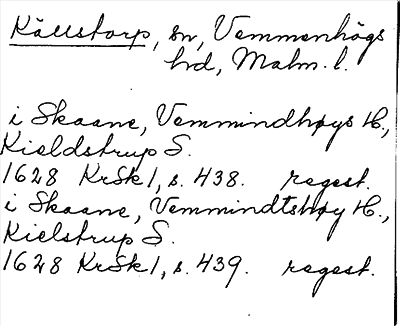 Källstorp, sn, Vemmenhögs
hrd, Malm. l.
i Skaane, Vemmindhøys H.,
Kieldstrup S.
1628 KrSk1, s. 438. regest.
i Skaane, Vemmindtshøy H.,
Kielstrup S.
1628 KrSk1, s. 439. regest.